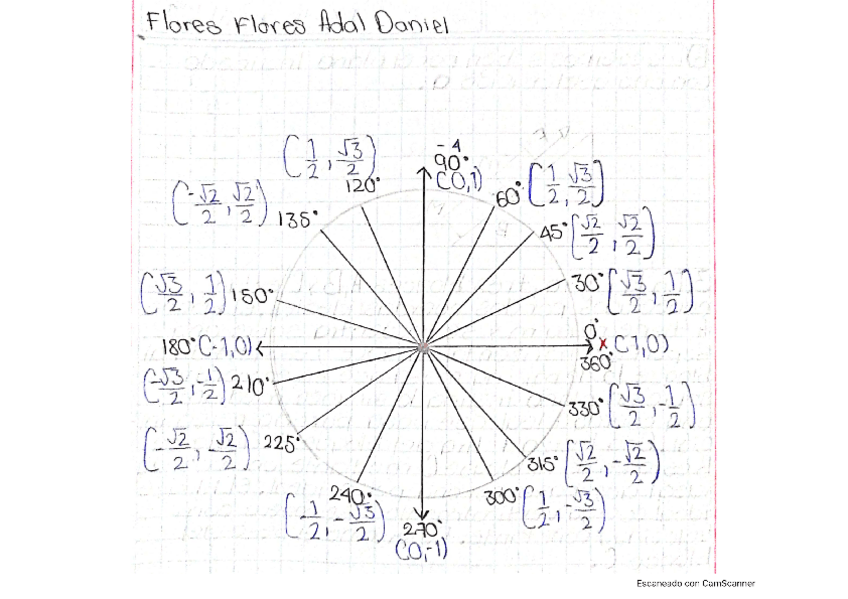 Flores Flores Adal Daniel
(1/2, √3/2)
120°
-4
90°
(0,1)
60° (1/2, √3/2)
(-√2/2, √2/2)
135°
45° (√2/2, √2/2)
(√3/2, 1/2) 150°
30° (√3/2, 1/2)
180° (-1,0)
0°
x (1,0)
360°
(-√3/2, -1/2) 210°
330° (√3/2, -1/2)
(-√2/2, -√2/2) 225°
315° (√2/2, -√2/2)
240°
(-1/2, -√3/2)
270°
(0,-1)
300° (1/2, -√3/2)
Escaneado con CamScanner